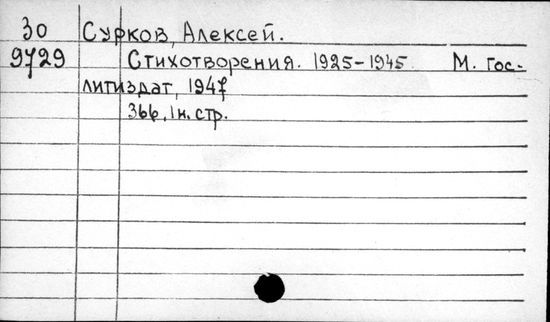 30 Сурков, Алексей.
9729 Стихотворения. 1925-1945. М. Гос-
литиздат, 1947
366, 1 н. стр.